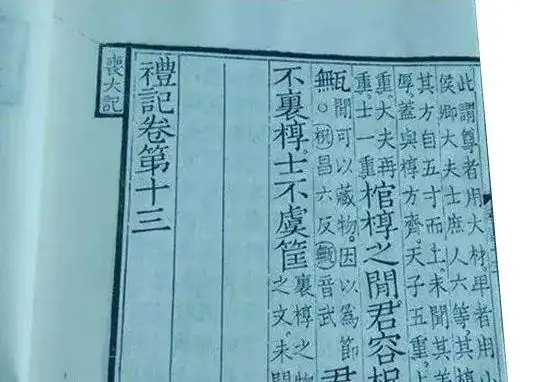 此謂尊者用大材，卑者用小
侯卿大夫士庶人六等，其椁
其方自五寸而上，未聞其
厚，蓋與椁方齊，天子五重，上
重，大夫再
重，士一重
棺椁之閒，君容柷
甒
閒可以藏物，因以爲節
○柷昌六反甒音武
君
不裏椁，士不虞筐
裏椁之物
之文，未聞
禮記卷第十三
喪大記